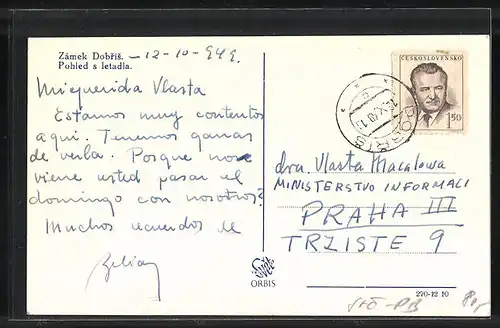 Zámek Dobříš.
Pohled s letadla.
-12-10-949.
Mi querida Vlasta
Estamos muy contentos
aqui. Tenemos ganas
de verla. Porque no se
viene usted pasar el
domingo con nosotros?
Muchos recuerdos de
ČESKOSLOVENSKO
1.50
DOBŘÍŠ
dra. Vlasta Macalowa
MINISTERSTVO INFORMALI
PRAHA III
TRZISTE 9
Svět
ORBIS
270-12 10